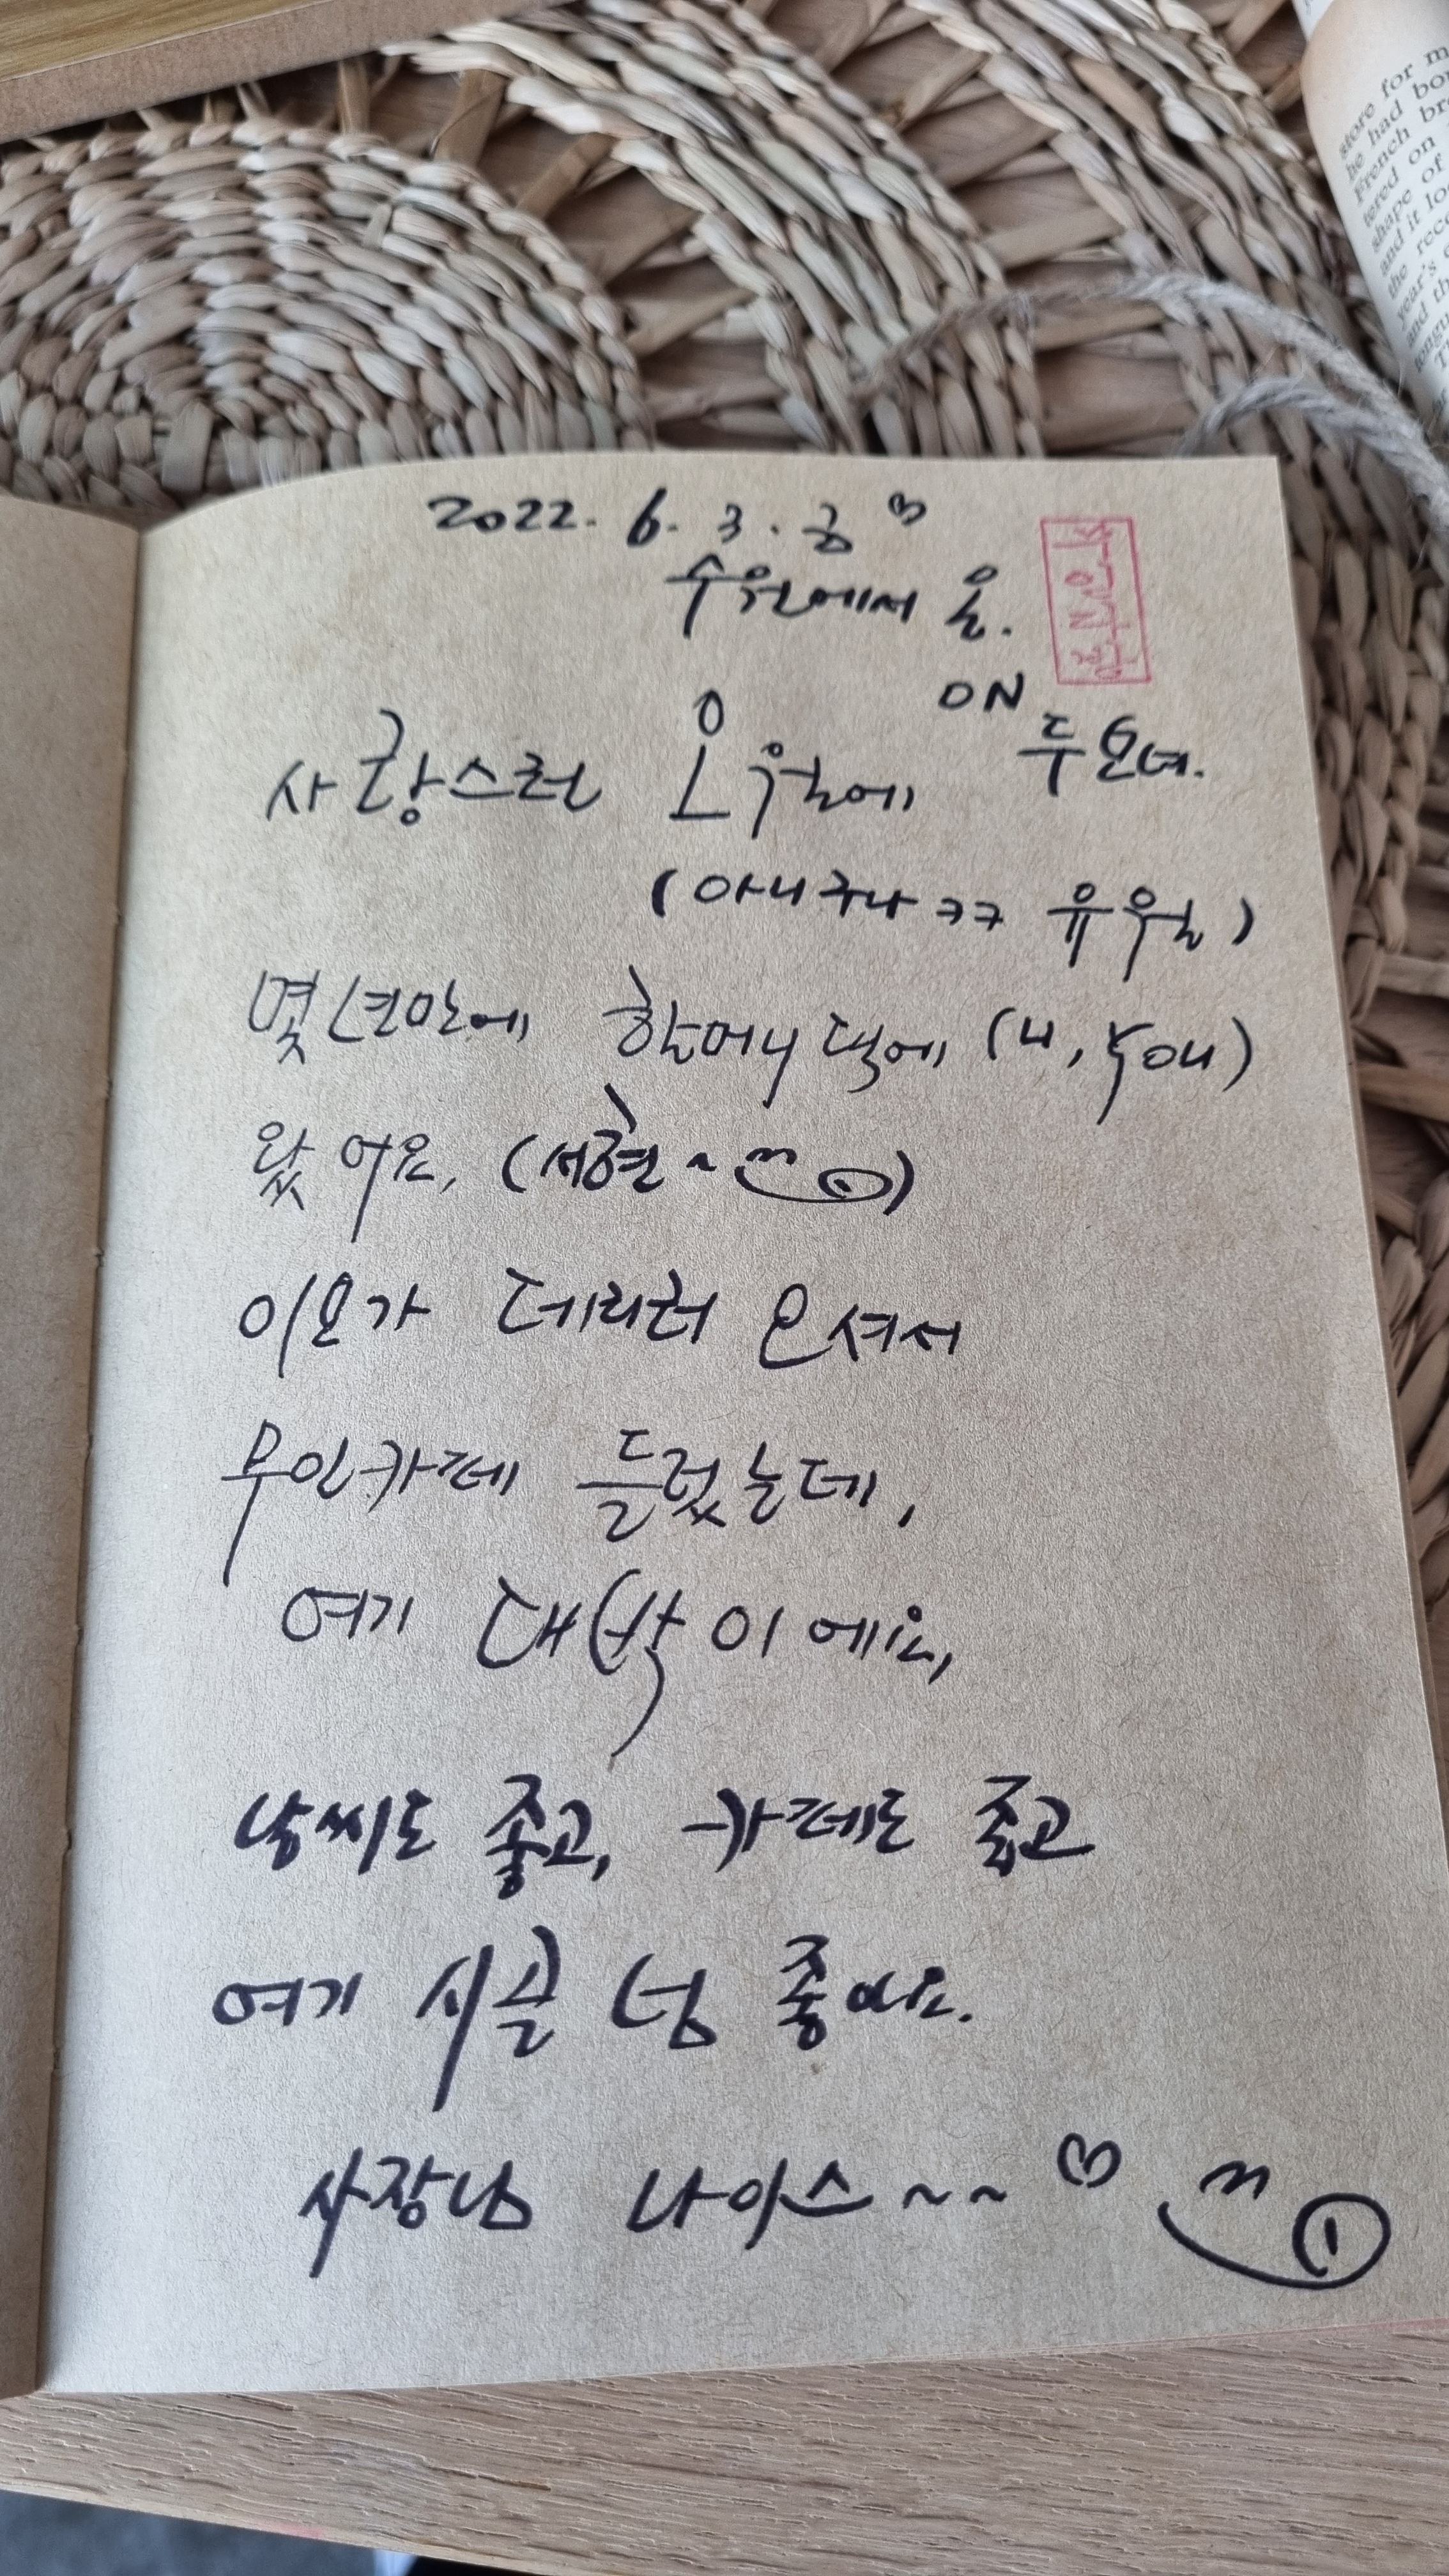 2022. 6. 3. 금 ♡
수원에서 온.
ON
두모녀.
사랑스런 오월에
(아니구나 ㅋㅋ 유월)
몇년만에 할머니 댁에 (나, 첫애)
왔어요. (서현~)
이모가 데리러 오셔서
무인카페 들렀는데,
여기 대박이에요,
날씨도 좋고, 카페도 좋고
여기 시골 넘 좋아요.
사장님 나이스~~ ♡
store for m
he had bo
French br
tered on
shape of
and it lo
the rec
year's
and th